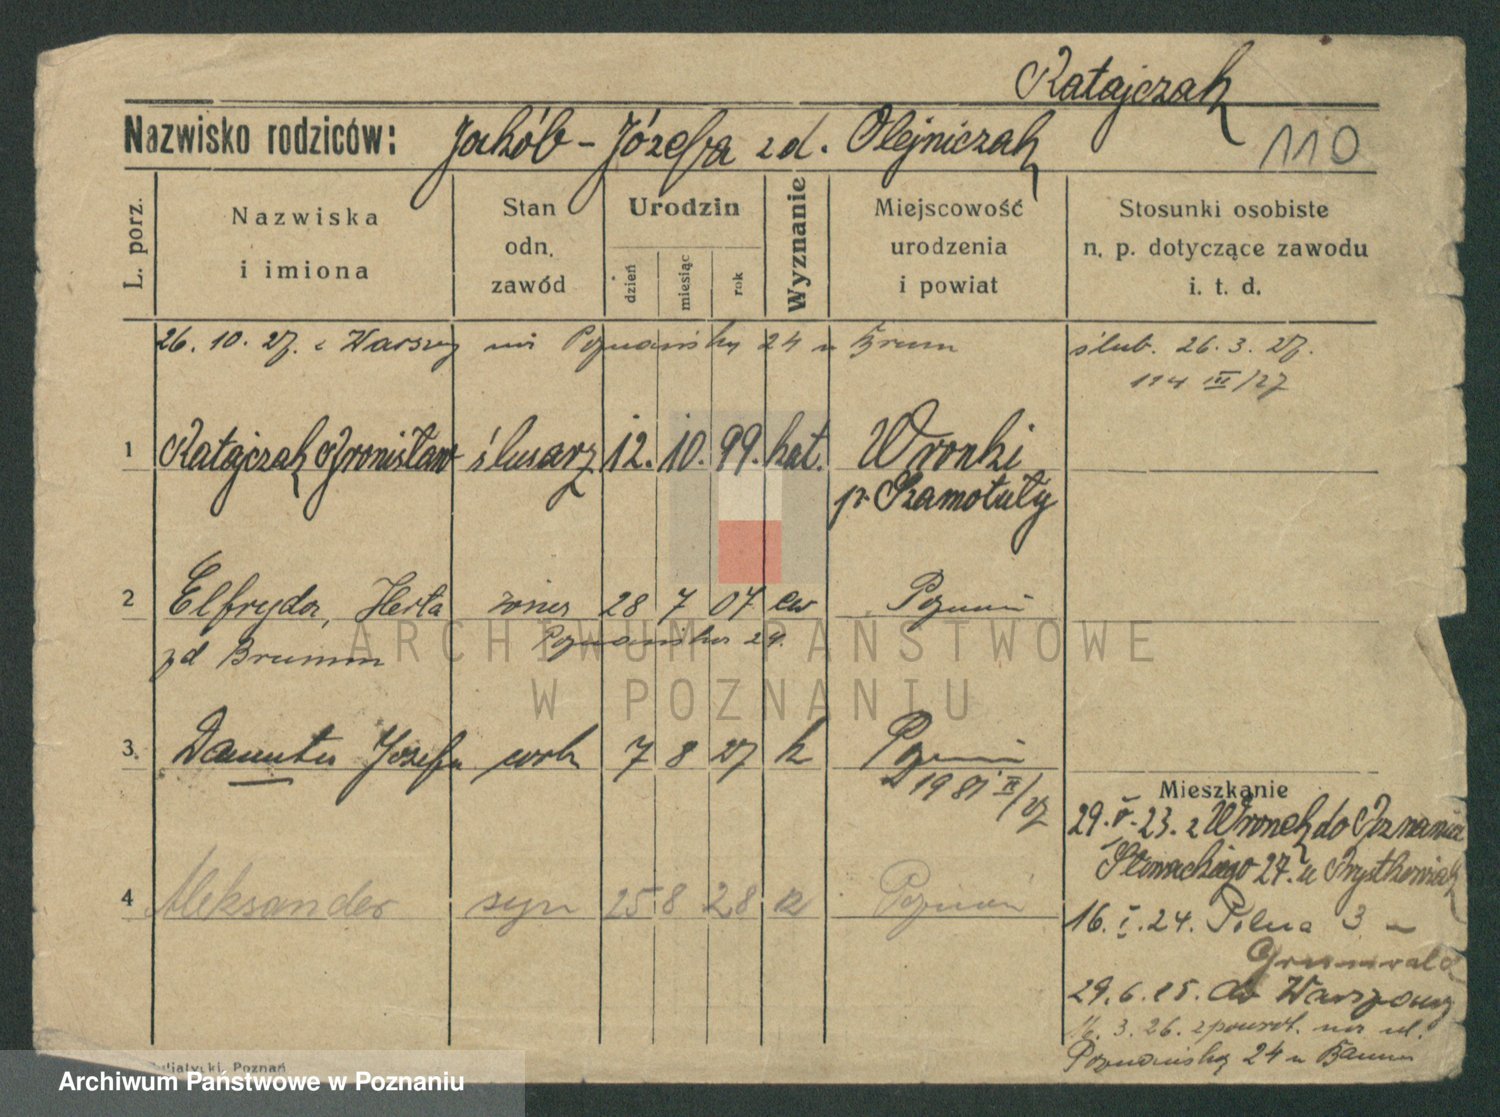 Katajczak
Nazwisko rodziców: Jakób - Józefa zd. Olejniczak
110
L. porz.
Nazwiska
i imiona
Stan
odn.
zawód
Urodzin
dzień
miesiąc
rok
Wyznanie
Miejscowość
urodzenia
i powiat
Stosunki osobiste
n. p. dotyczące zawodu
i. t. d.
26. 10. 27. z Warszawy na Poznańską 24 u Brum
ślub. 26. 3. 27.
114 III/27
1 Katajczak Bronisław ślusarz 12. 10. 99. kat. Wronki
p. Szamotuły
2 Elfryda, Herta żona 28 7 07 ew Poznań
zd Brumm Poznańska 24.
3. Danuta Józefa córk 7 8 27 k Poznań
1981 IV/27
Mieszkanie
29. V. 23. z Wronek do Poznania
Słowackiego 27. u
4 Aleksander syn 25 8 28 k Poznań
16. I. 24. Polna 3 -
Grunwald
29. 6. 25. do Warszawy
16. 3. 26. z powrot. na ul.
Poznańską 24 u
Poznań
ARCHIWUM PAŃSTWOWE
W POZNANIU
Archiwum Państwowe w Poznaniu